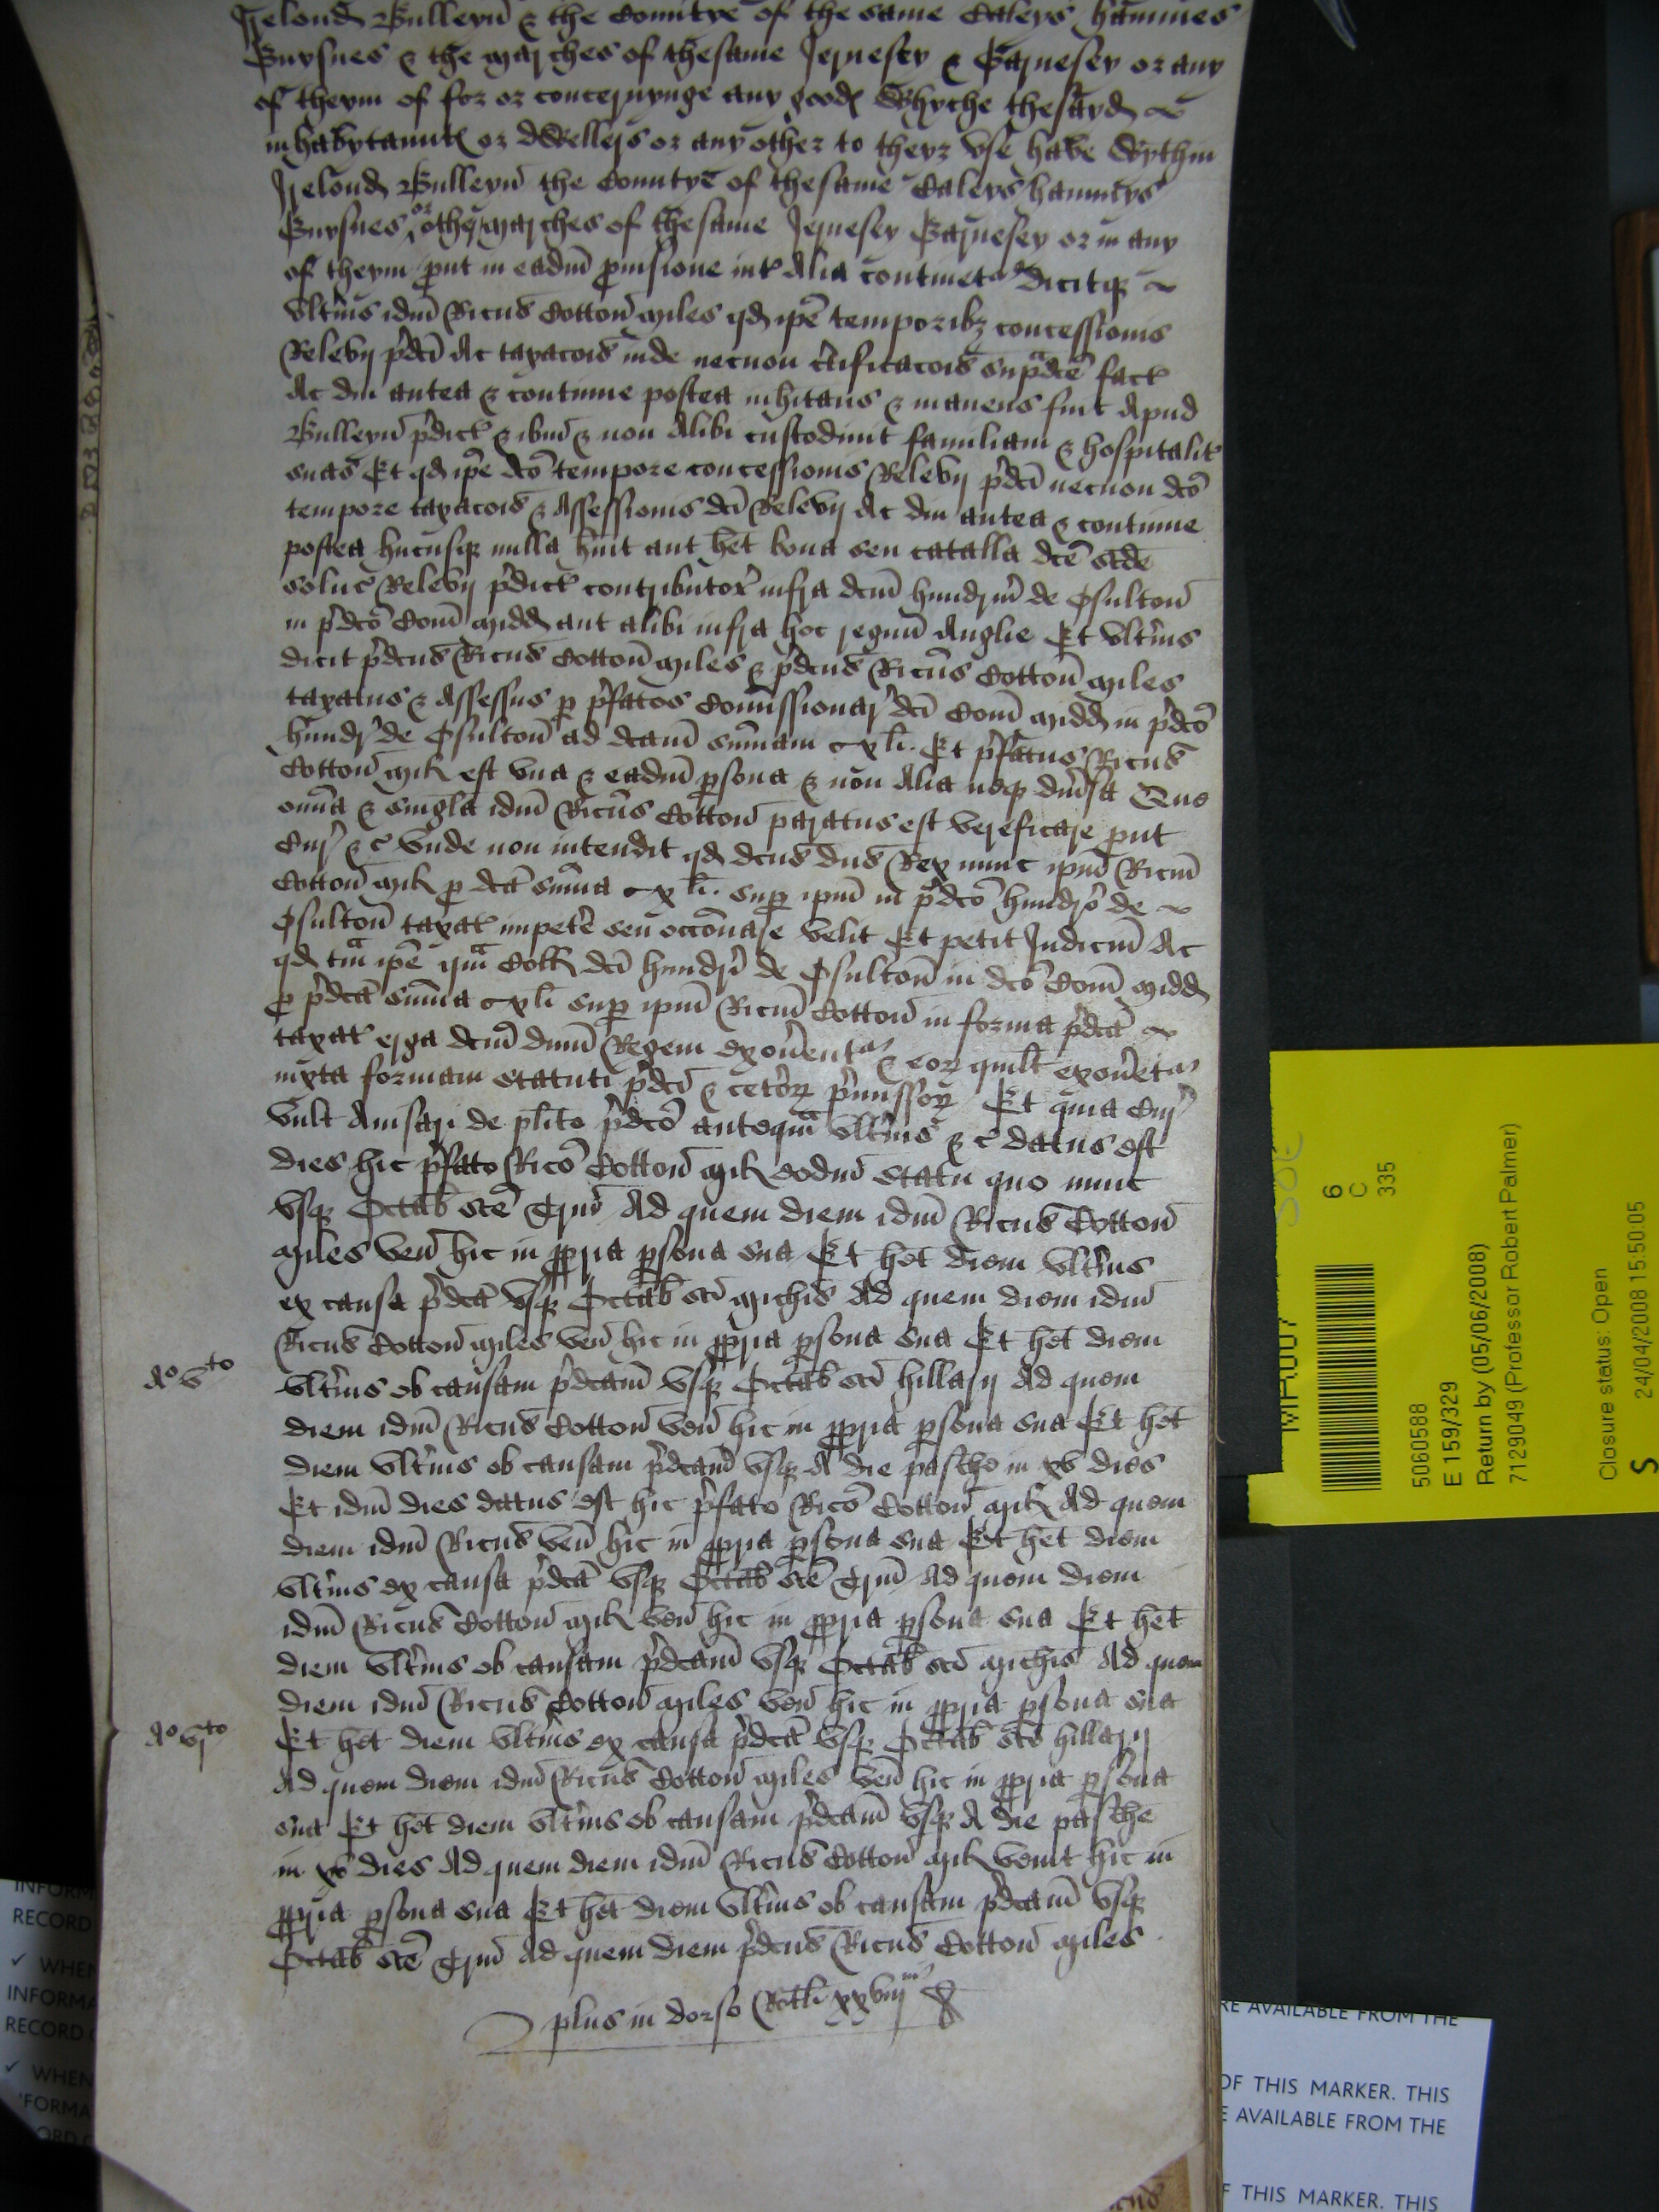 Irelond Bulleyn & the Countye of the same Caleys hammes
Guysnes & the marches of thesame Jernesey & Garnesey or any
of theym of for or concernynge any good whyche thesayd
inhabytaunt or dwellers or any other to theyr use have wythin
Irelond Bulleyn the Countye of thesame Caleys hammys
Guysnes or the marches of thesame Jernesey Garnesey or in any
of theym put in eadm pvisione int alia continetr dicitq
ultius idm Ricus Cotton miles qd ipe temporibz concessionis
Relevii pdci ac taxacois inde necnon ctificacois supadce fact
ac diu antea & continue postea inhitans & manens fuit apud
Bulleyn pdict & ibm & non alibi custodivit familiam & hospitalit
suas Et qd ipe dco tempore concessionis Relevii pdci necnon dco
tempore taxacois & assessionis dci Relevii ac diu antea & continue
postea hucusq nulla huit aut het bona seu catalla dce
soluc Relevii pdict contributor infra dcm hundrm de Osulton
in pdco Com midd aut alibi infra hoc regnum Anglie Et ultius
dicit pdcus Ricus Cotton miles & pdcus Ricus Cotton miles
taxatus & assessus p pfatos Comissionar dci Com midd in pdco
hundr de Osulton ad dcam sumam cxli. Et pfatus Ricus
Cotton mil est una & eadm psona & non alia neq divsa Que
omia & singla idm Ricus Cotton paratus est verificare put
Cur &c unde non intendit qd dcus dns Rex nunc ipm Ricm
Cotton mil p dca suma cxli. sup ipm in pdco hundro de
Osulton taxat impetere seu occonare velit Et petit Judicm ac
qd tam ipe qam Coll dci hundri de Osulton in dco Com midd
p pdca suma cxli sup ipm Ricm Cotton in forma pdca
taxat erga dcm dnm Regem exonentr & eor quilt exonetr
iuxta formam statuti pdci & cetor pmissor Et quia Cur
vult avisari de plito pdco anteqam ultius &c datus est
dies hic pfato Rico Cotton mil eodm statu quo nunc
usq Octab sce Trin Ad quem diem idm Ricus Cotton
miles ven hic in ppria psona sua Et het diem ultius
ex causa pdca usq Octab sci michis Ad quem diem idm
Ricus Cotton miles ven hic in ppria psona sua Et het diem
Ao vto
ultius ob causam pdcam usq Octab sci hillarii Ad quem
diem idm Ricus Cotton ven hic in ppria psona sua Et het
diem ultius ob causam pdcam usq A die pasche in xv dies
Et idm dies datus est hic pfato Rico Cotton mil Ad quem
diem idm Ricus ven hic in ppria psona sua Et het diem
ultius ex causa pdca usq Octab sce Trin Ad quem diem
idm Ricus Cotton mil ven hic in ppria psona sua Et het
diem ultius ob causam pdcam usq Octab sci michis Ad quem
diem idm Ricus Cotton miles ven hic in ppria psona sua
Ao vjto
Et het diem ultius ex causa pdca usq Octab sci hillarii
Ad quem diem idm Ricus Cotton miles ven hic in ppria psona
sua Et het diem ultius ob causam pdcam usq A die pasche
in xv dies Ad quem diem idm Ricus Cotton mil venit hic in
ppria psona sua Et het diem ultius ob causam pdcam usq
Octab sce Trin Ad quem diem pdcus Ricus Cotton miles
plus in dorso Rotli xxviii
6
C
335
5060588
E 159/329
Return by (05/06/2008)
7129049 (Professor Robert Palmer)
Closure status: Open
24/04/2008 15:50:05
S
INFORM
RECORD
✓ WHEN
INFORMA
RECORD
✓ WHEN
RE AVAILABLE FROM THE
OF THIS MARKER. THIS
E AVAILABLE FROM THE
F THIS MARKER. THIS